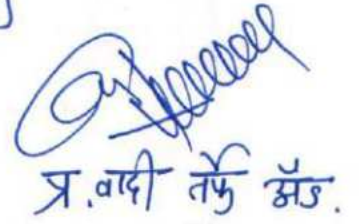 प्र.वादी तर्फे ॲड.